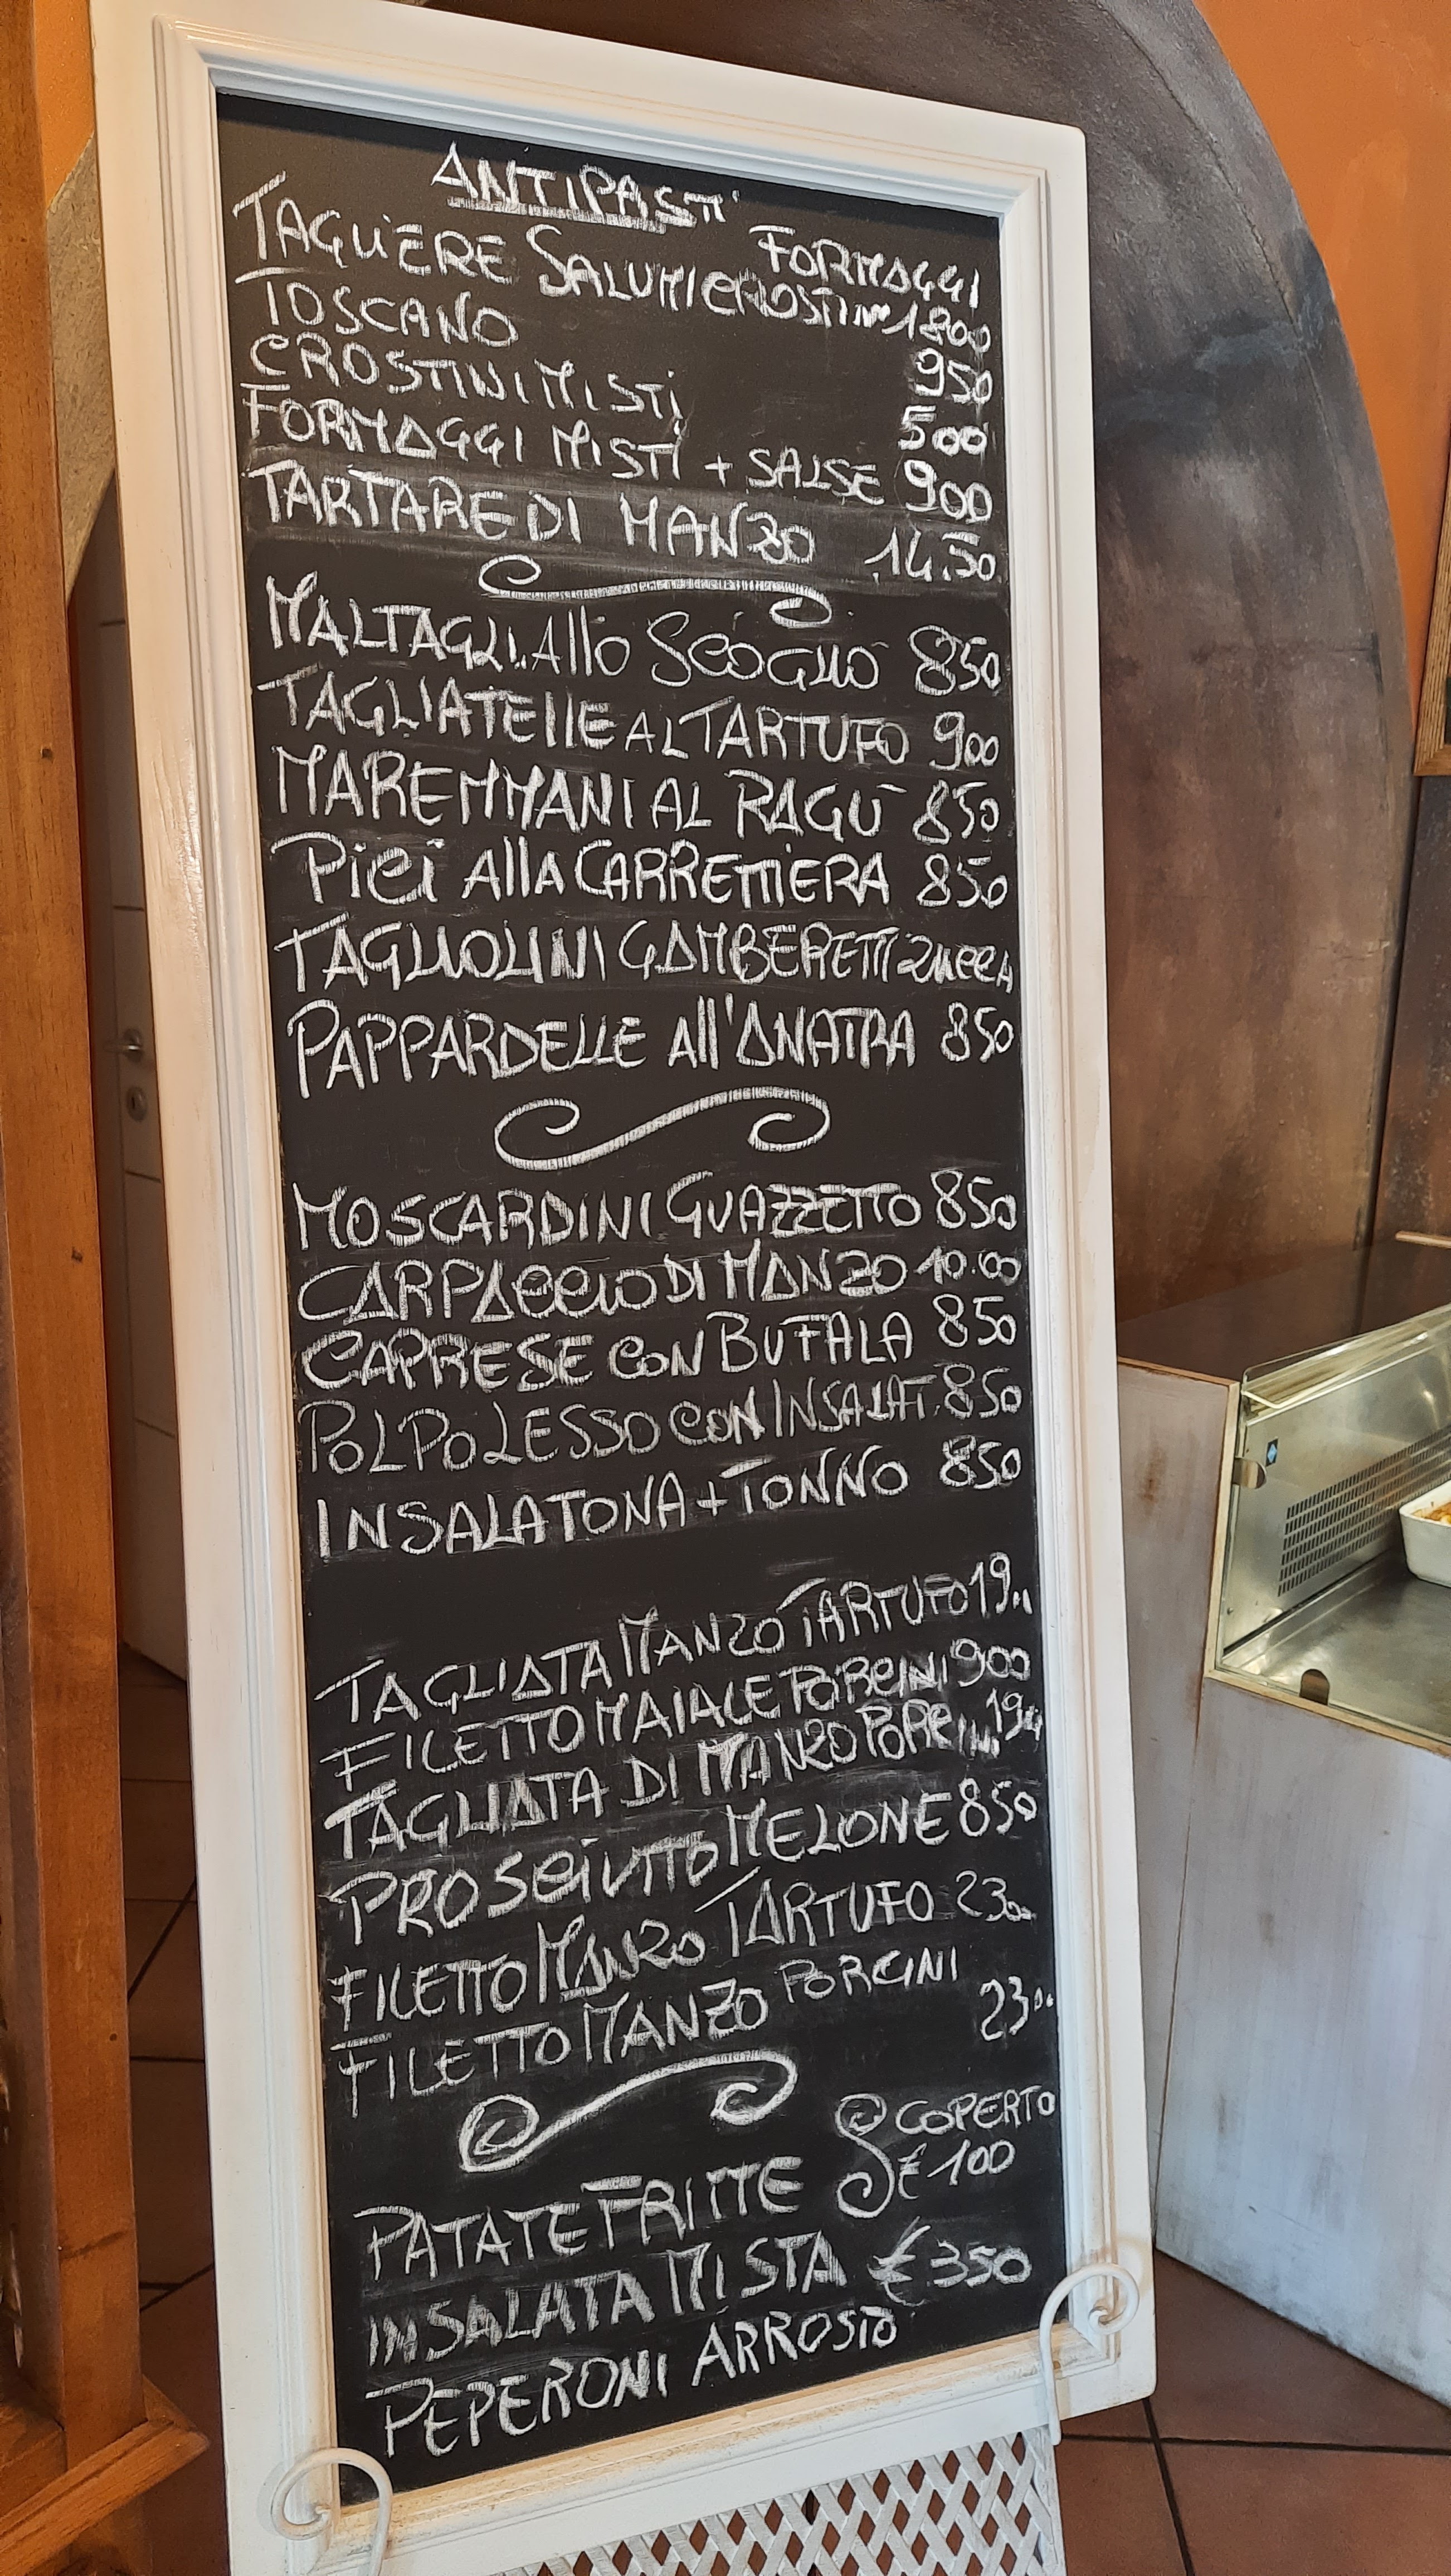 ANTIPASTI
TAGLIERE SALUMI FORMAGGI
CROSTINI 1800
TOSCANO 950
CROSTINI MISTI 500
FORMAGGI MISTI + SALSE 900
TARTARE DI MANZO 14.50
MALTAGLI. Allo SCOGLIO 850
TAGLIATElle AL TARTUFO 900
MAREMMANI AL RAGÙ 850
Pici AllA CARRETTIERA 850
TAGLIOLINI GAMBERETTI ZUCCA
PAPPARDELLE All'ANATRA 850
MOSCARDINI GUAZZETTO 850
CARPACCIO DI MANZO 10.00
CAPRESE CON BUFALA 850
POLPO LESSO CON INSALAT. 850
INSALATONA + TONNO 850
TAGLIATA MANZO TARTUFO 19..
FILETTO MAIALE PORCINI 900
TAGLIATA DI MANZO PORCINI 19
PROSCIUTTO MELONE 850
FILETTO MANZO TARTUFO 23..
FILETTO MANZO PORCINI
23..
COPERTO
€ 100
PATATE FRITTE
INSALATA MISTA € 350
PEPERONI ARROSTO